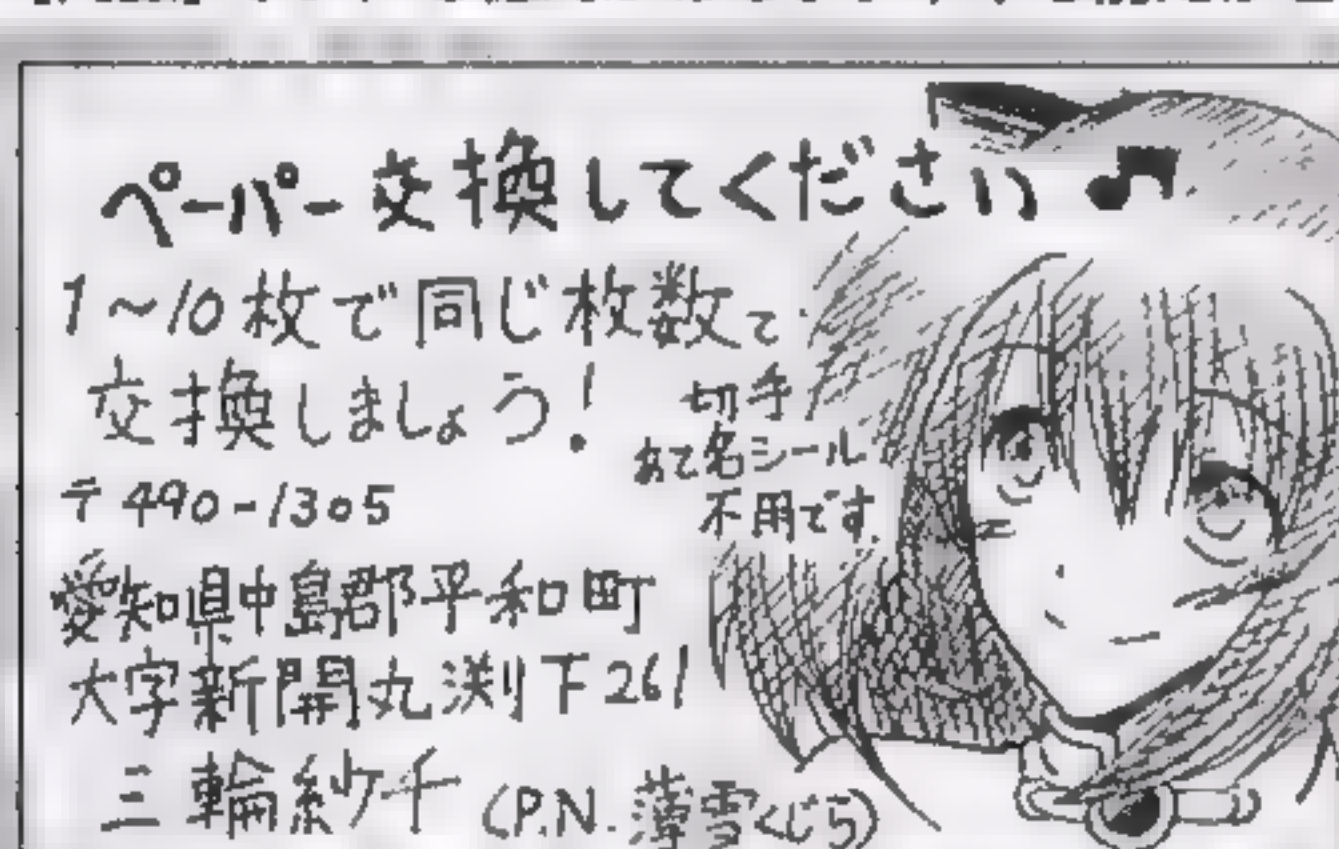 ペーパー交換してください♪
1～10枚で同じ枚数で
交換しましょう！
切手
あて名シール
不用です。
〒490-1305
愛知県中島郡平和町
大字新開丸渕下261
三輪紗千
(P.N. 薄雪くじら)